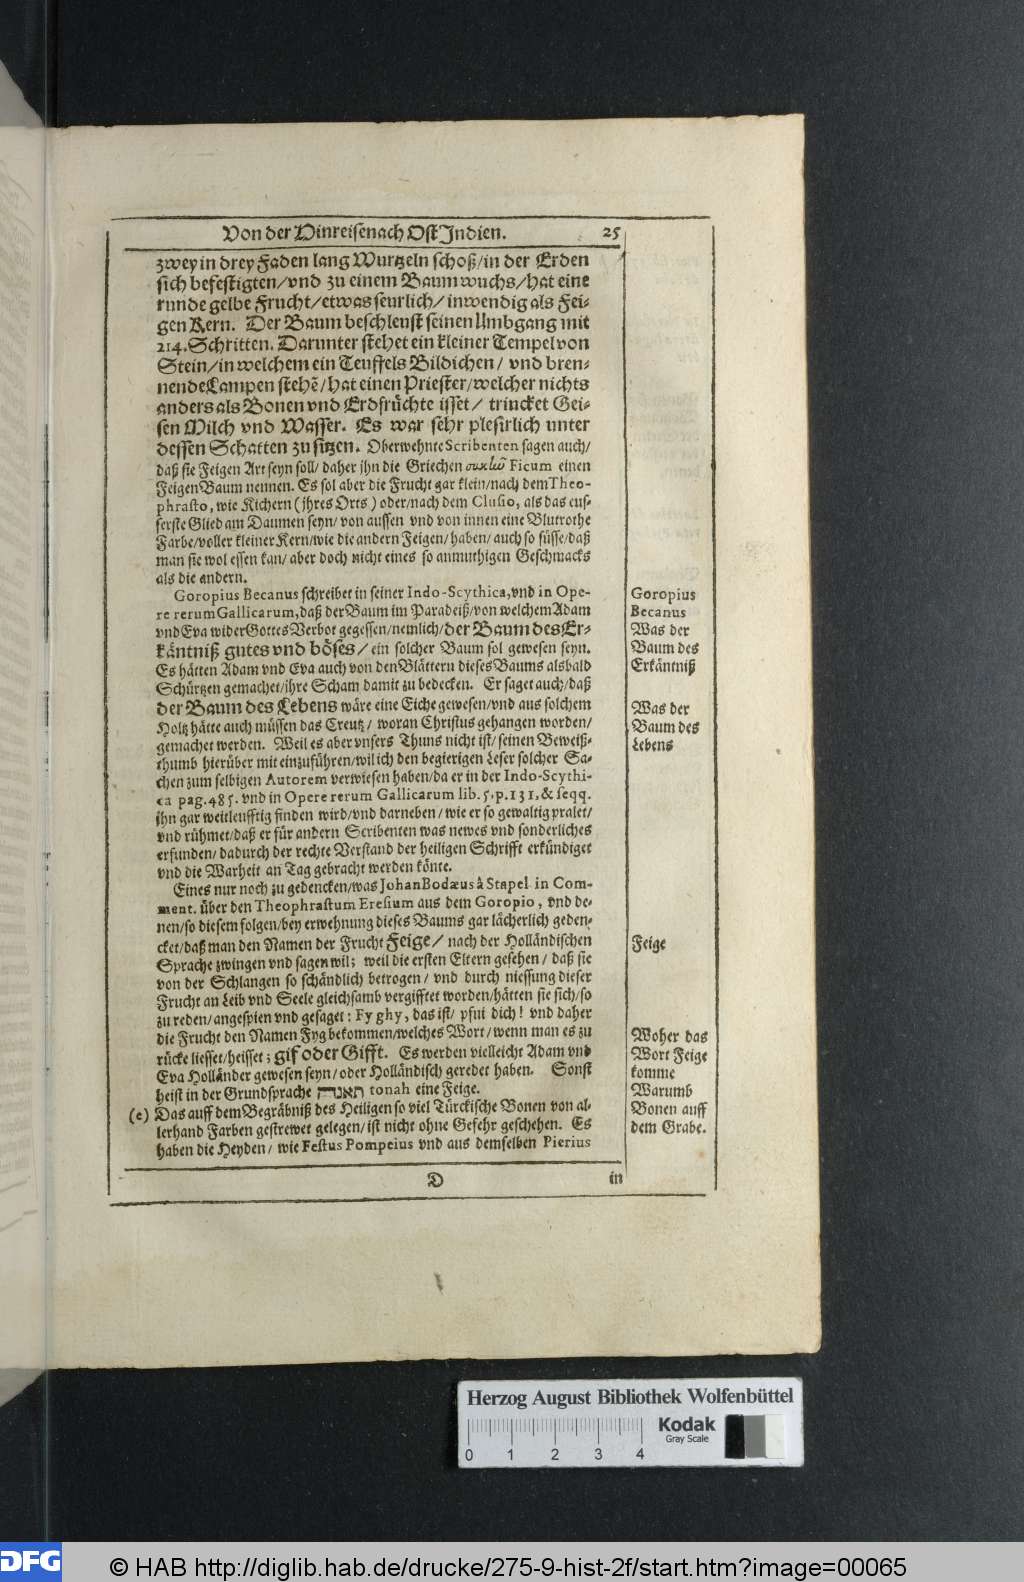 Von der Hinreise nach Ost Indien. 25
zwey in drey Faden lang Wurtzeln schoß/ in der Erden
sich befestigten/ vnd zu einem Baum wuchs/ hat eine
runde gelbe Frucht/ etwas seurlich/ inwendig als Fei-
gen Kern. Der Baum beschleust seinen Umbgang mit
214. Schritten. Darunter stehet ein kleiner Tempel von
Stein/ in welchem ein Teuffels Bildichen/ vnd bren-
nende Lampen stehẽ/ hat einen Priester/ welcher nichts
anders als Bonen vnd Erdfrüchte isset/ trincket Gei-
sen Milch vnd Wasser. Es war sehr plesirlich unter
dessen Schatten zu sitzen. Oberwehnte Scribenten sagen auch/
daß sie Feigen Art seyn soll/ daher ihn die Griechen Ficum einen
Feigen Baum nennen. Es sol aber die Frucht gar klein/ nach dem Theo-
phrasto, wie Kichern (ihres Orts) oder/ nach dem Clusio, als das eus-
serste Glied am Daumen seyn/ von aussen vnd von innen eine Blutrothe
Farbe/ voller kleiner Kern/ wie die andern Feigen/ haben/ auch so süsse/ daß
man sie wol essen kan/ aber doch nicht eines so anmuthigen Geschmacks
als die andern.
Goropius Becanus schreibet in seiner Indo-Scythica, vnd in Ope-
re rerum Gallicarum, daß der Baum im Paradeiß/ von welchem Adam
vnd Eva wider Gottes Verbot gegessen/ nemlich/ der Baum des Er-
käntniß gutes vnd böses/ ein solcher Baum sol gewesen seyn.
Es hätten Adam vnd Eva auch von den Blättern dieses Baums alsbald
Schürtzen gemachet/ ihre Scham damit zu bedecken. Er saget auch/ daß
der Baum des Lebens wäre eine Eiche gewesen/ vnd aus solchem
Holtz hätte auch müssen das Creutz/ woran Christus gehangen worden/
gemachet werden. Weil es aber vnsers Thuns nicht ist/ seinen Beweiß-
thumb hierüber mit einzuführen/ wil ich den begierigen Leser solcher Sa-
chen zum selbigen Autorem verwiesen haben/ da er in der Indo-Scythi-
ca pag. 485. vnd in Opere rerum Gallicarum lib. 5. p. 131, & seqq.
ihn gar weitleufftig finden wird/ vnd darneben/ wie er so gewaltig pralet/
vnd rühmet/ daß er für andern Scribenten was newes vnd sonderliches
erfunden/ dadurch der rechte Verstand der heiligen Schrifft erkündiget
vnd die Warheit an Tag gebracht werden könte.
Eines nur noch zu gedencken/ was Johan Bodæus à Stapel in Com-
ment. über den Theophrastum Eresium aus dem Goropio, vnd de-
nen/ so diesem folgen/ bey erwehnung dieses Baums gar lächerlich geden-
cket/ daß man den Namen der Frucht Feige/ nach der Holländischen
Sprache zwingen vnd sagen wil; weil die ersten Eltern gesehen/ daß sie
von der Schlangen so schändlich betrogen/ vnd durch niessung dieser
Frucht an Leib vnd Seele gleichsamb vergifftet worden/ hätten sie sich/ so
zu reden/ angespien vnd gesaget: Fy ghy, das ist/ pfui dich! vnd daher
die Frucht den Namen Fyg bekommen/ welches Wort/ wenn man es zu
rücke liesset/ heisset; gif oder Gifft. Es werden vielleicht Adam vnd
Eva Holländer gewesen seyn/ oder Holländisch geredet haben. Sonst
heist in der Grundsprache תאנה tonah eine Feige.
(e) Das auff dem Begräbniß des Heiligen so viel Türckische Bonen von al-
lerhand Farben gestrewet gelegen/ ist nicht ohne Gefehr geschehen. Es
haben die Heyden/ wie Festus Pompeius vnd aus demselben Pierius
D in
Goropius
Becanus
Was der
Baum des
Erkäntniß
Was der
Baum des
Lebens
Feige
Woher das
Wort Feige
komme
Warumb
Bonen auff
dem Grabe.
Herzog August Bibliothek Wolfenbüttel
Kodak
Gray Scale
0 1 2 3 4
DFG © HAB http://diglib.hab.de/drucke/275-9-hist-2f/start.htm?image=00065